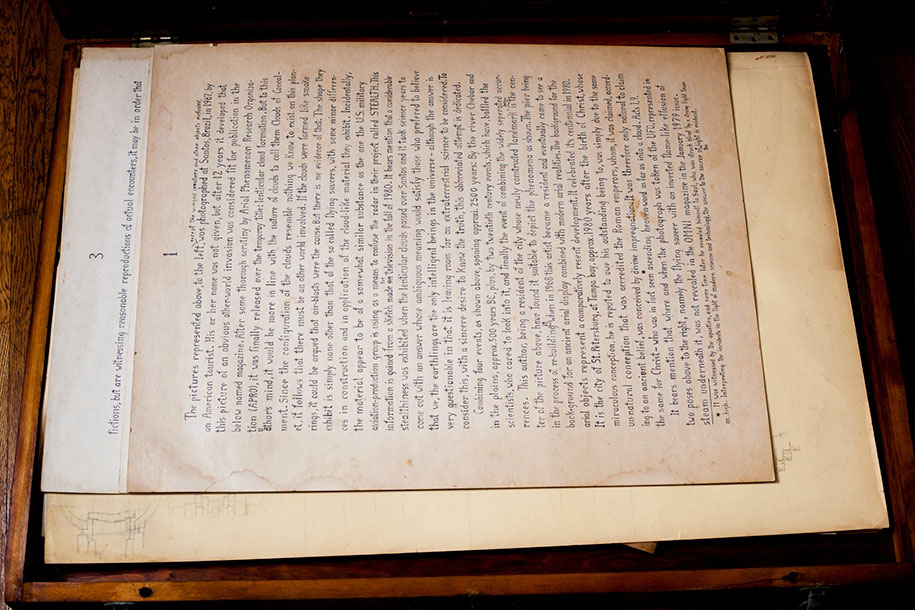 fictions, but are witnessing reasonable reproductions of actual encounters, it may be in order that
3
1
The pictures represented above, to the left, was photographed at Santos, Brazil, in 1967, by
an American tourist. His or her name was not given, but after 12 years it developed that
this picture of an obvious otherworld invasion was considered fit for publication in the
below named magazine. After some thorough scrutiny by Arial Phenomena Research Organiza-
tions (APRO), it was finally released over the tempory title: lenticular cloud formation. But to this
authors mind, it would be more in line with the nature of clouds to call them Clouds of Conceal-
ment. Since the configuration of the clouds resemble nothing we know to exist on this plan-
et, it follows that there must be an other world involved. If the clouds were formed like smoke
rings, it could be argued that air-blasts were the cause. But there is no evidence of that. The shape they
exhibit is simply none other than that of the so called flying saucers, with some minor differen-
ces in construction and in application of the cloud-like material they exhibit. Incidentally,
the material appear to be of a somewhat similar substance as the one the U.S. military
aviation-production group is using as a means to confuse the radar in their project called STEALTH. This
information is gained from a sketch made on the Television in the fall of 1980. It bears mention that a considerable
stealthiness was exhibited when the lenticular clouds passed over Santos and it took science 12 years to
come out with an answer whose ambigious meaning would satisfy those who preferred to believe
that we, the earthlings are the only intelligent beings in the universe - although the answer is
very questionable in that it is leaving room for an extraterrestrial science to be considered. To
consider this, with a sincere desire to know the truth, this abbreviated attempt is dedicated.
Combining four events, as shown above, spaning approx. 2500 years: By the river Chebar and
in the plains, approx. 500 years BC, plus, by two twentieth century events, which have baffled the
scientists, who cared to look into it, and finally the event of combining the widely seperated occur-
rences. This author, being a resident of the city whose newly constructed landmark in the cen-
ter of the picture above, have found it suitable to depict this phenomena as shown. The pier being
in the process of re-building when in 1968 this artist became a resident and eventually came to see a
background for an ancient arial display combined with modern arial realities. The background for the
arial objects represent a comperatively recent development. It celebrated its centennial in 1980.
It is the city of St. Petersburg, at Tampa bay, approx. 1980 years after the birth of Christ, whose
miraculous conception, he is reputed to owe his outstanding being to, was simply due to the same
unnatural conception that was accredited the Roman emperors, whom, it was claimed, accord-
ing to an ancient belief, was conceived by divine impregnation. It was therefore only natural to claim
the same for Christ - who was in fact seen ascending heavenward as far as into a cloud. Acts 1,9.
It bears mention that where and when the photograph was taken of the UFO, represented in
two poses above to the right, namely the flying saucer with an inverted flame-like effusion of
steam underneath it, was not revealed in the OMNI magazine in the January 1979 issue.